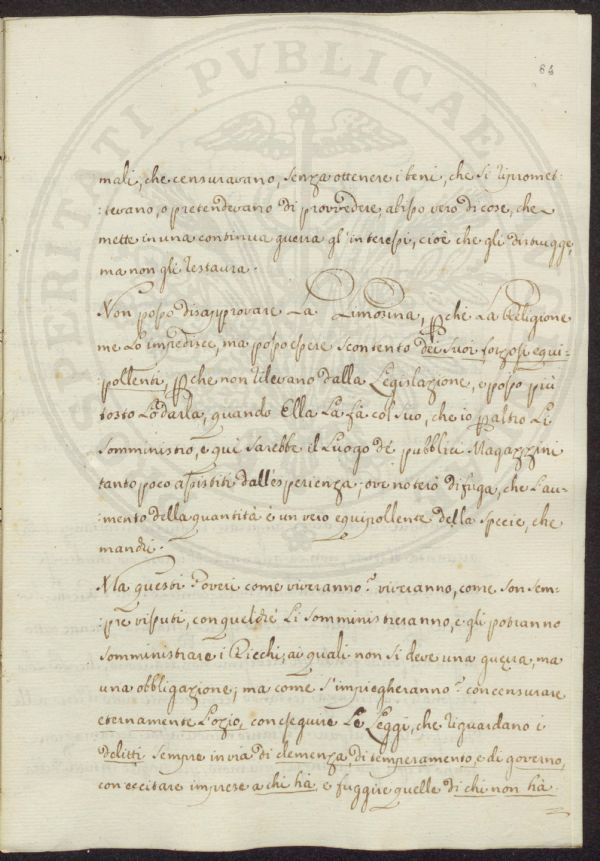 64
mali, che censuravano, senza ottenere i beni, che si ripromet-
:tevano, o pretendevano di provvedere a uno stato di cose, che
mette in una continua guerra gl'interessi, cioè che gli distrugge,
ma non gli restaura.
Non posso disapprovare La Limosina, pche La Religione
me Lo impedisce, ma posso essere scontento dei suoi forzosi equi-
:pollenti, pche non rilevano dalla Legislazione, e posso più
tosto Lodarla, quando Ella La fà col suo, che io paltro Li
somministro, e qui sarebbe il Luogo de' pubblici Magazzini
tanto poco assistiti dall'esperienza; ove noterò di fuga, che L'au-
:mento della quantità è un vero equipollente della specie, che
manchi.
Ma questi Poveri come viveranno? viveranno, come son sem-
:pre vissuti, con quel che Li somministreranno, e gli potranno
somministrare i Ricchi; ai quali non si deve una guerra, ma
una obbligazione; ma come s'impiegheranno? con censurare
eternamente L'ozio, con eseguire Le Leggi, che riguardano i
delitti sempre in via di clemenza, di temperamento, e di governo,
con eccitare imprese a chi hà, e fuggire quelle di chi non hà.
SPERITATI PVBLICAE